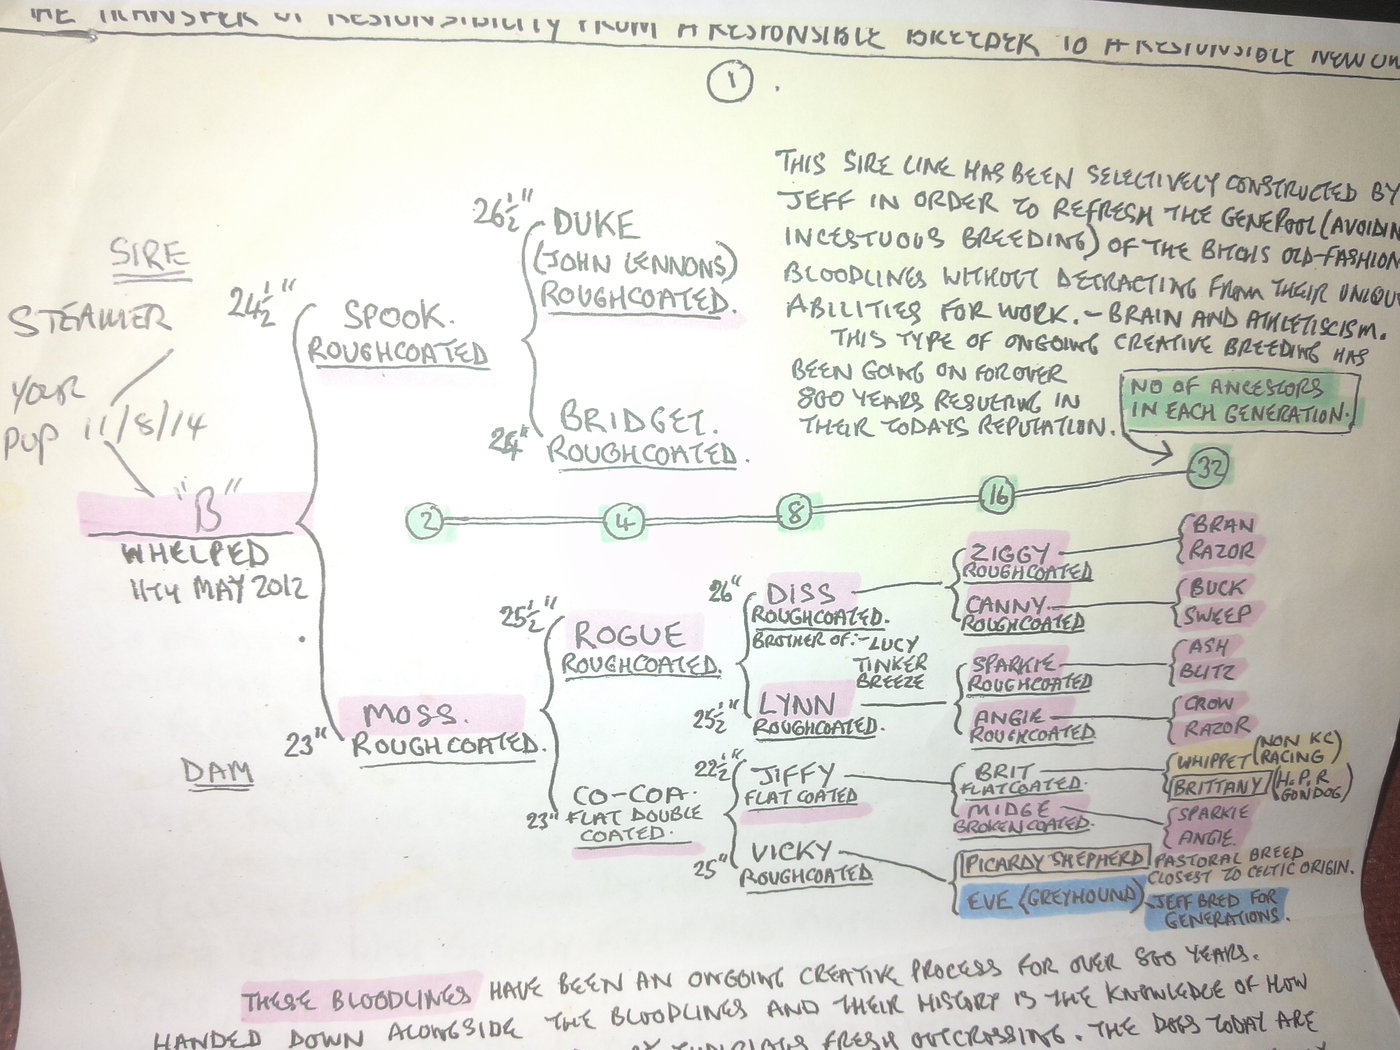 THE TRANSFER OF RESPONSIBILITY FROM A RESPONSIBLE BREEDER TO A RESPONSIBLE NEW
1
THIS SIRE LINE HAS BEEN SELECTIVELY CONSTRUCTED BY
JEFF IN ORDER TO REFRESH THE GENEPOOL (AVOIDIN
INCESTUOUS BREEDING) OF THE BITCHS OLD-FASHION
BLOODLINES WITHOUT DETRACTING FROM THEIR UNIQU
ABILITIES FOR WORK. - BRAIN AND ATHLETISCISM.
THIS TYPE OF ONGOING CREATIVE BREEDING HAS
BEEN GOING ON FOR OVER
800 YEARS RESULTING IN
THEIR TODAYS REPUTATION.
NO OF ANCESTORS
IN EACH GENERATION.
SIRE
STEAMER
YOUR
PUP 11/8/14
"B"
WHELPED
11TH MAY 2012
DAM
24½"
SPOOK.
ROUGHCOATED
26½"
DUKE
(JOHN LENNONS)
ROUGHCOATED.
BRIDGET.
ROUGHCOATED.
2
4
8
16
32
23"
MOSS.
ROUGHCOATED.
25½"
ROGUE
ROUGHCOATED.
23"
CO-COA.
FLAT DOUBLE
COATED.
26"
DISS
ROUGHCOATED.
BROTHER OF:- LUCY
TINKER
BREEZE
25½"
LYNN
ROUGHCOATED.
22½"
JIFFY
FLAT COATED
25"
VICKY
ROUGHCOATED
ZIGGY
ROUGHCOATED
CANNY.
ROUGHCOATED
SPARKIE
ROUGHCOATED
ANGIE
ROUGHCOATED
BRIT
FLATCOATED.
MIDGE
BROKENCOATED.
PICARDY SHEPHERD
EVE (GREYHOUND)
BRAN
RAZOR
BUCK
SWEEP
ASH
BLITZ
CROW
RAZOR
WHIPPET (NON KC RACING)
BRITTANY (H.P.R GUNDOG)
SPARKIE
ANGIE.
PASTORAL BREED
CLOSEST TO CELTIC ORIGIN.
JEFF BRED FOR
GENERATIONS.
THESE BLOODLINES HAVE BEEN AN ONGOING CREATIVE PROCESS FOR OVER 800 YEARS.
HANDED DOWN ALONGSIDE THE BLOODLINES AND THEIR HISTORY IS THE KNOWLEDGE OF HOW
FRESH OUTCROSSING. THE DOGS TODAY ARE